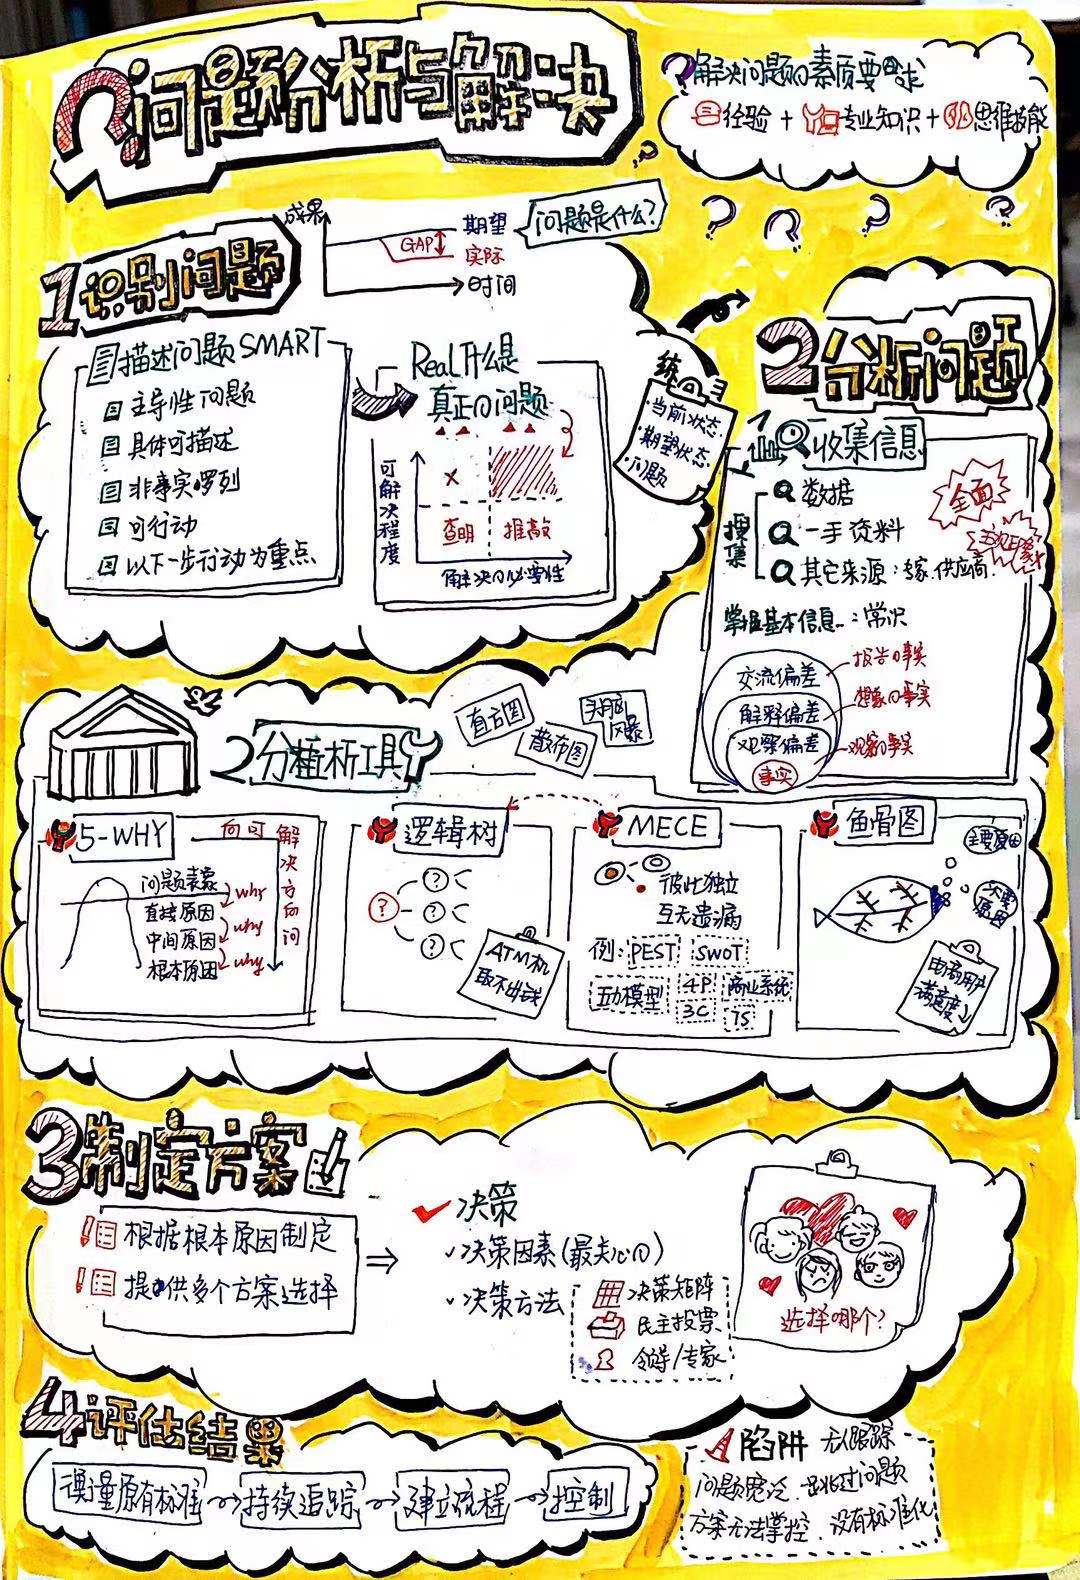 问题分析与解决
解决问题の素质要求
经验 + 专业知识 + 思维技能
1 识别问题
成果
GAP
期望
实际
时间
问题是什么?
描述问题 SMART
主导性问题
具体可描述
非事实罗列
可行动
以下一步行动为重点
Real 什么是
真正の问题
可解决程度
×
查明
推敲
解决の必要性
练
当前状态
期望状态
问题
2 分析问题
收集信息
搜集
数据
一手资料
其它来源:专家.供应商.
全面
主观印象
掌握基本信息..:常识
交流偏差
报告の事实
解释偏差
想象の事实
观察偏差
观察の事实
事实
2 分析工具
直方图
散布图
头脑风暴
5-WHY
问题表象
直接原因
中间原因
根本原因
why
why
why
向可
解决方向问
逻辑树
?
?
?
?
ATM机
取不出钱
MECE
彼此独立
互无遗漏
例: PEST SWOT
五力模型 4P 商业系统
3C 7S
鱼骨图
主要原因
次要原因
电商用户
满意度↓
3 制定方案
根据根本原因制定
提供多个方案选择
决策
决策因素(最关心の)
决策方法
决策矩阵
民主投票
领导/专家
选择哪个?
4 评估结果
衡量原有标准
持续追踪
建立流程
控制
陷阱 无人跟踪
问题宽泛.
跳过问题
方案无法掌控.没有标准化